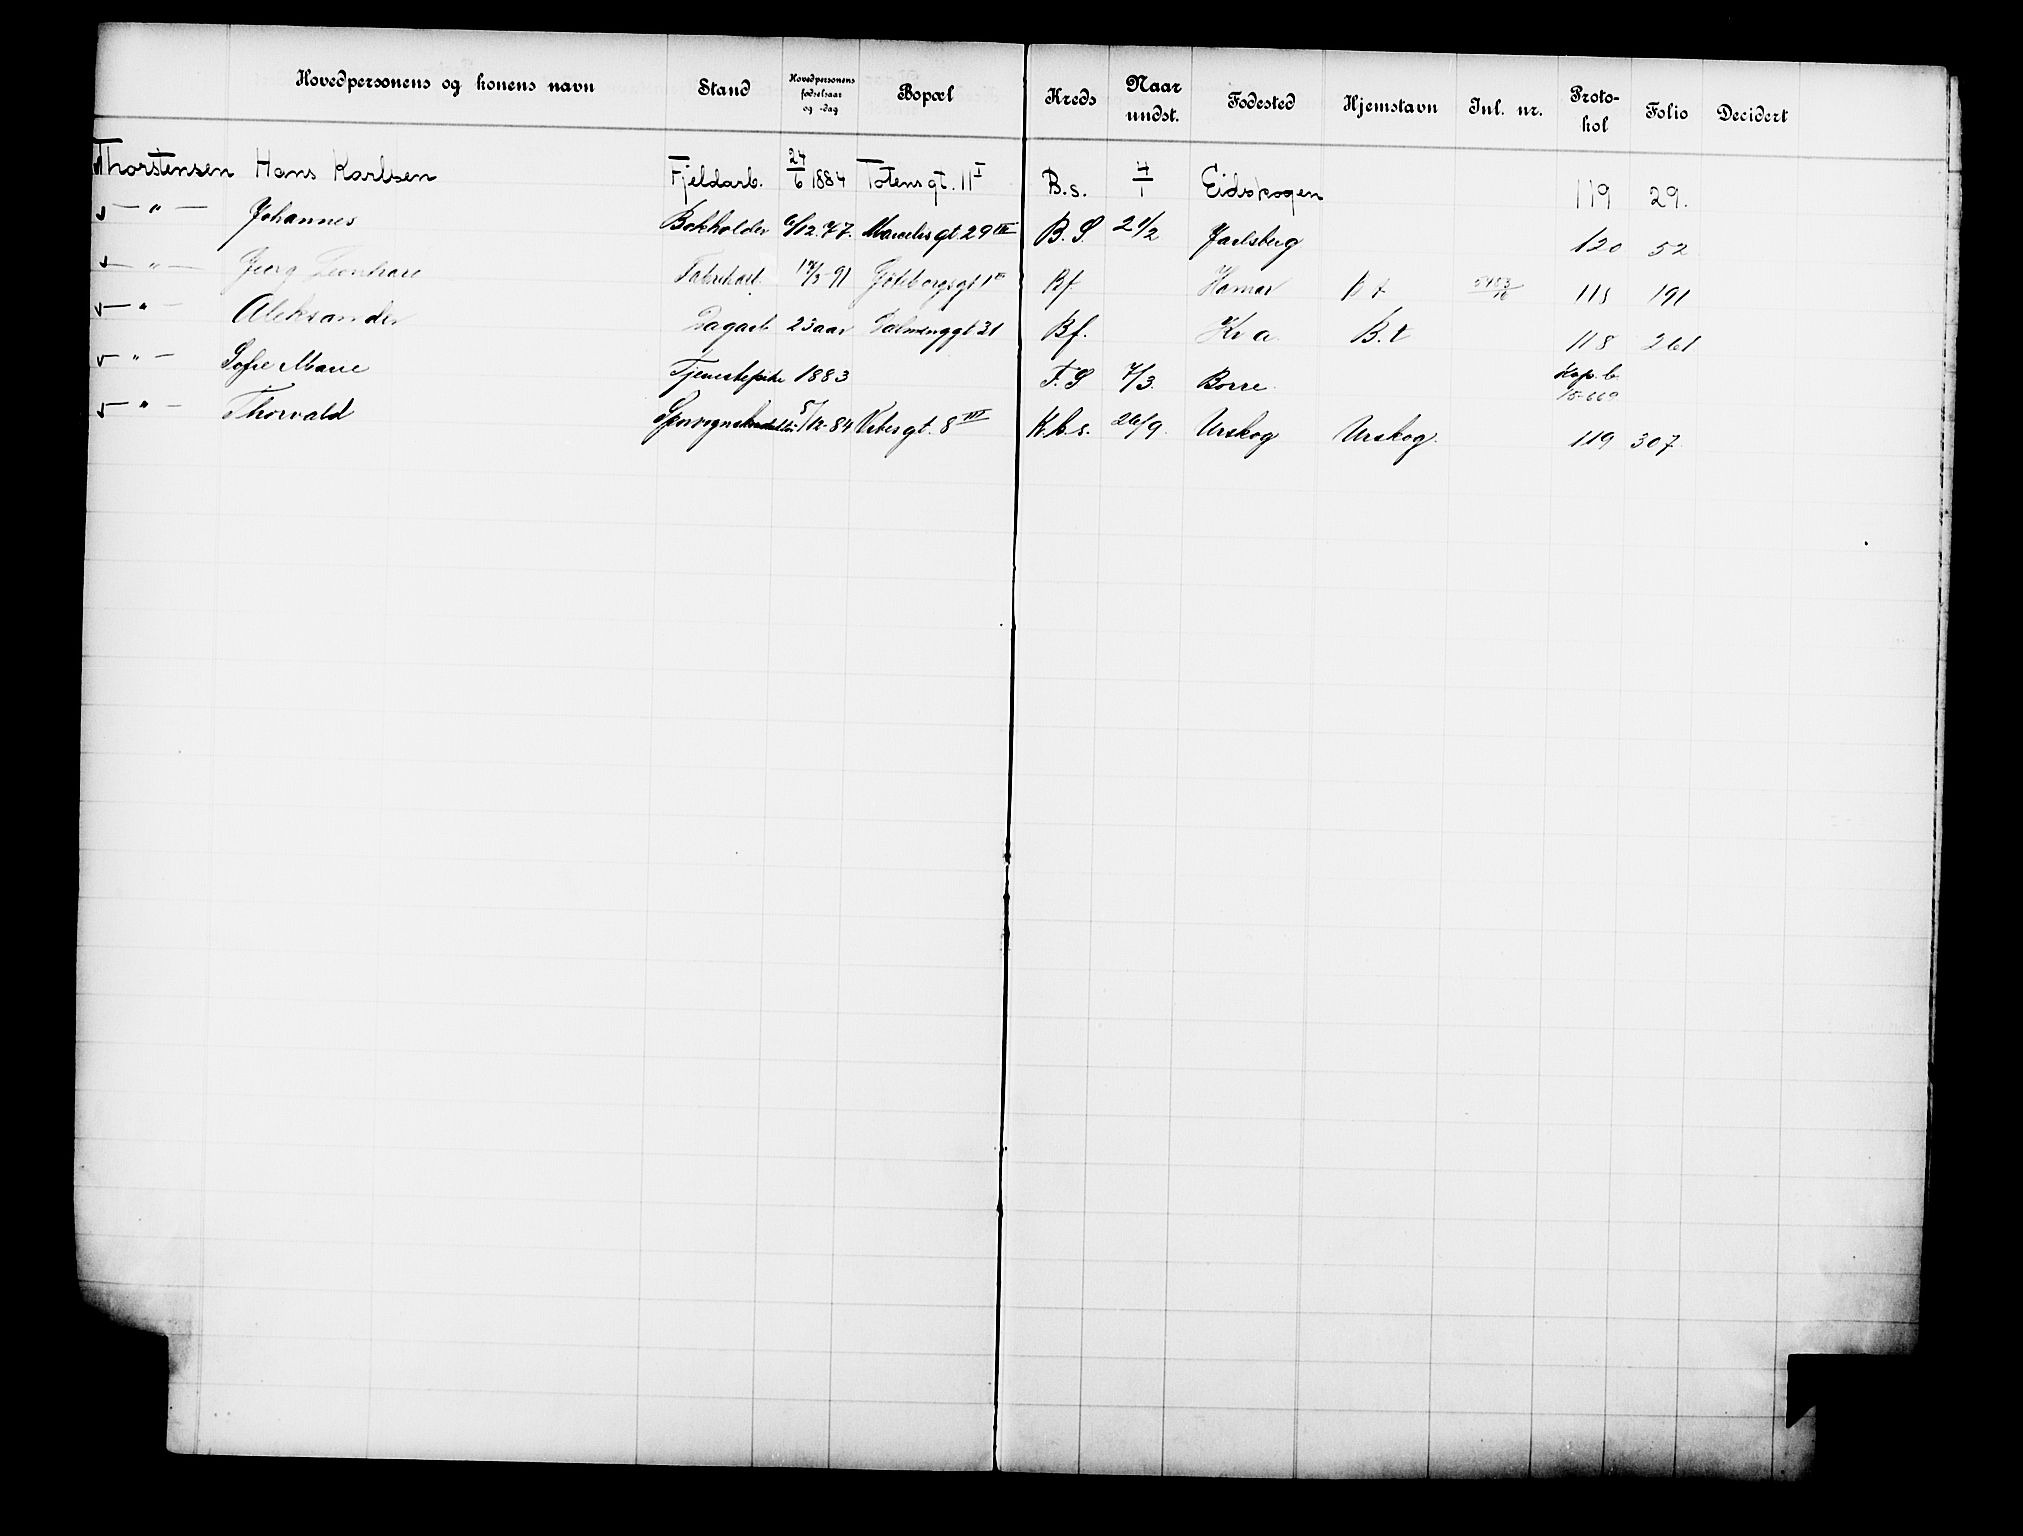 Hovedpersonens og konens navn Stand Hovedpersonens fødselsaar og -dag Bopæl Kreds Naar undst. Fødested Hjemstavn Inl. nr. Proto-kol Folio Decidert
Thorstensen Hans Karlsen Fjeldarb. 24/6 1884 Totensgt. 11 I B.s. 4/1 Eidskogen 119 29.
— " — Johannes Bokholder 6/12.77. Marcelisgt. 29 III B. S. 21/2 Jarlsberg 120 52
— " — Georg Leonhard Fabrikarb. 17/3-91 Göteborgsgt 1 Bf Hamar B t 118 191
— " — Aleksander Dagarb. 23 aar Dælenenggt 31 Bf. Kr a. B.t 118 261
— " — Sofie Marie Tjenestepike 1883 F. S 7/3. Borre. Kop. b.
— " — Thorvald 5/12-84 Vibesgt. 8 III K.b.s. 26/9. Urskog Urskog. 119 307.